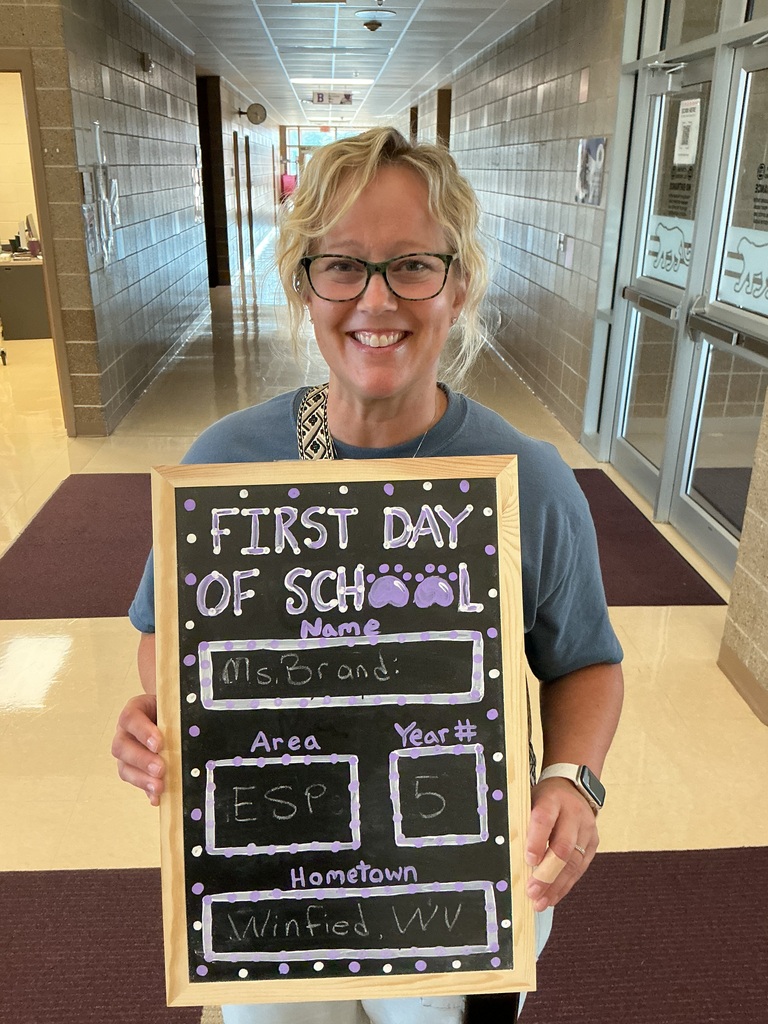 B
FIRST DAY
OF SCHOOL
Name
Ms. Brandi
Area
Year #
ESP
5
Hometown
Winfied, WV